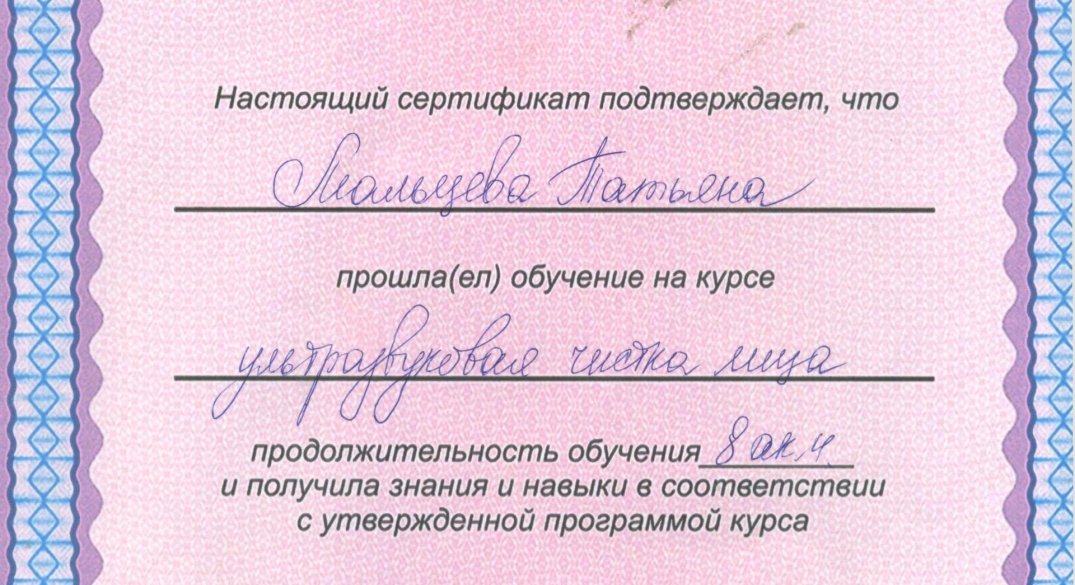 Настоящий сертификат подтверждает, что
Мальцева Татьяна
прошла(ел) обучение на курсе
ультразвуковая чистка лица
продолжительность обучения 8 ак.ч.
и получила знания и навыки в соответствии
с утвержденной программой курса